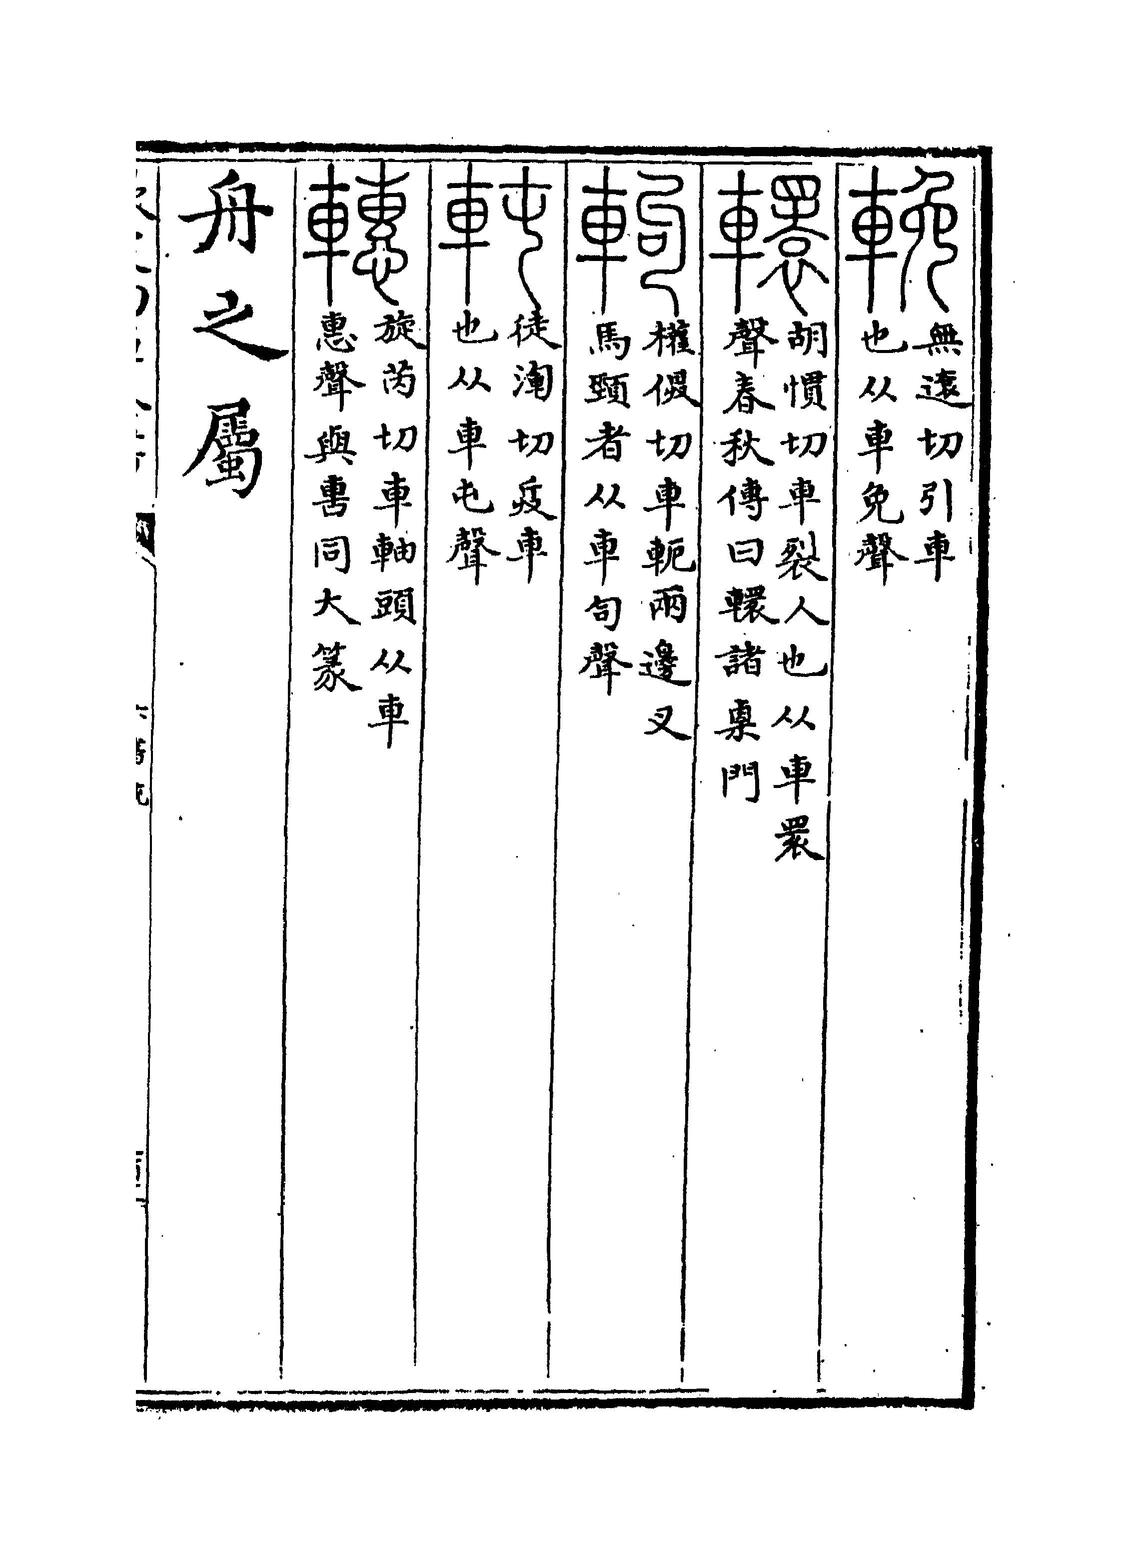 輓 無遠切引車
也从車免聲
轘 胡慣切車裂人也从車睘
聲春秋傳曰轘諸㮚門
軥 權俱切車軛兩邊叉
馬頸者从車句聲
軘 徒渾切兵車
也从車屯聲
轊 旋芮切車軸頭从車
惠聲與軎同大篆
舟之屬
六書統